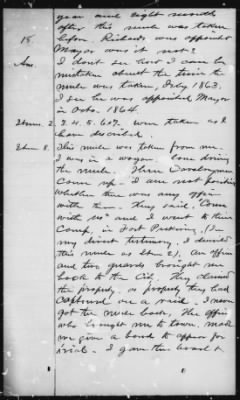 year and eight months
after this mule was taken
before Richards was appointed
Mayor was it not?
18.
Ans I don't see how I can be
mistaken about the time the
mule was taken, July 1863.
I see he was appointed Mayor
in Octo. 1864.
Items. 2. 3. 4. 5. 6 & 7. were taken as I
have described.
Item 8. This mule was taken from me.
I was in a wagon. Done driving
the mule. Three Cavalrymen
came up - I am not positive
whether there was any officer
with them - they said, "Come
with us" and I went to their
Camp, in Fort Pickering. (In
my direct testimony, I described
this mule as Item 2). An officer
and two guards brought me
back to the City. They claimed
the property, as property they had
captured on a raid. I never
got the mule back. The officer
who brought me to town, made
me give a bond to appear for
trial. I gave the bond &